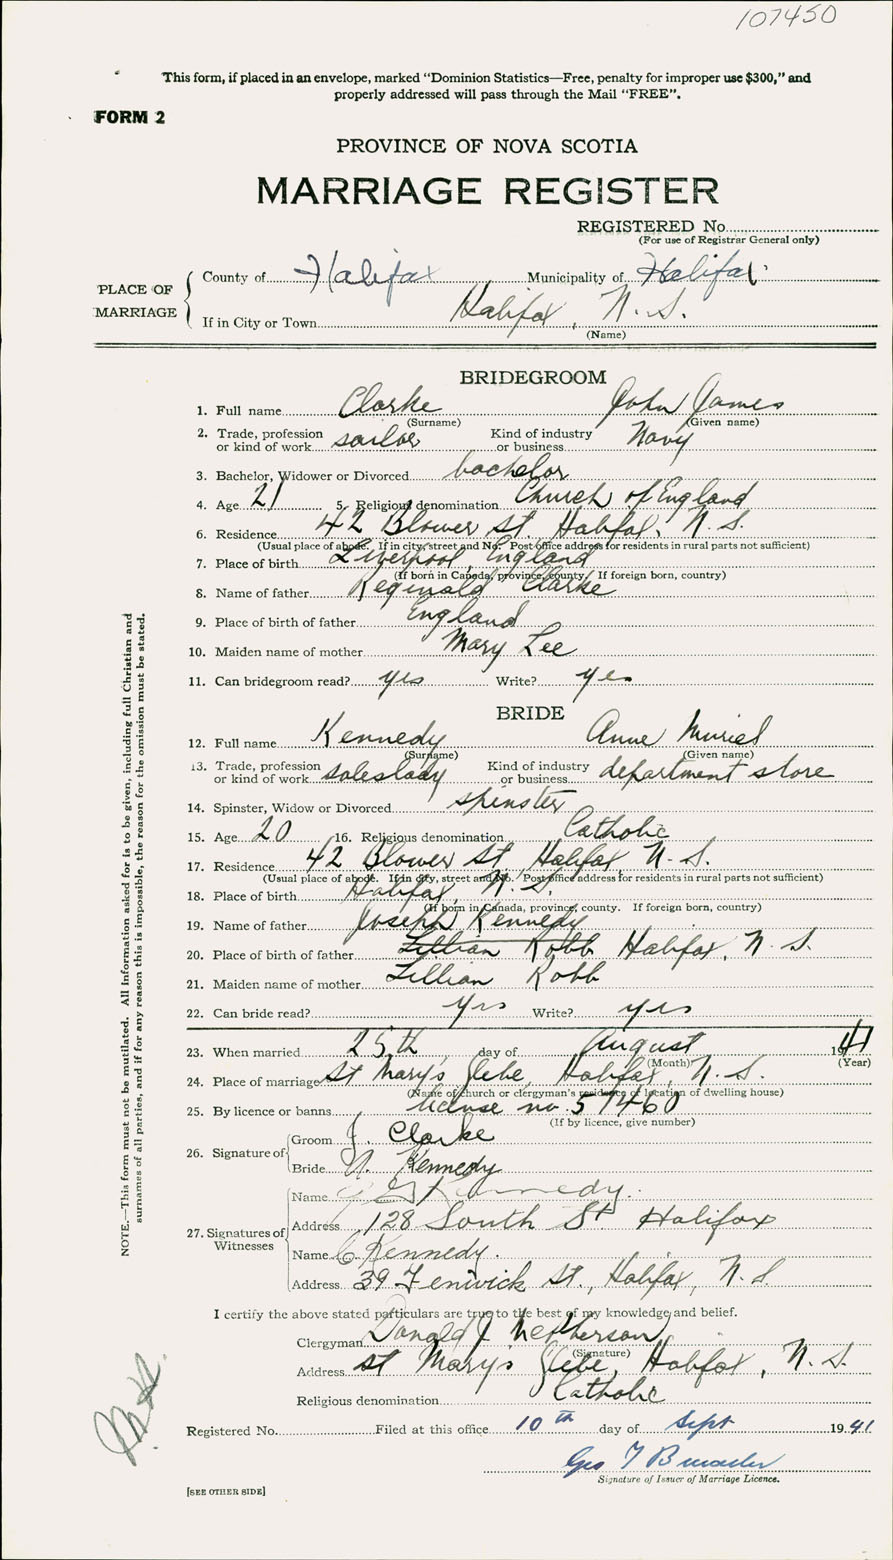 107450
This form, if placed in an envelope, marked “Dominion Statistics—Free, penalty for improper use $300,” and
properly addressed will pass through the Mail “FREE”.
FORM 2
PROVINCE OF NOVA SCOTIA
MARRIAGE REGISTER
REGISTERED No.
(For use of Registrar General only)
PLACE OF MARRIAGE
County of Halifax Municipality of Halifax
If in City or Town Halifax, N.S.
(Name)
BRIDEGROOM
1. Full name Clarke John James
(Surname) (Given name)
2. Trade, profession or kind of work sailor Kind of industry or business Navy
3. Bachelor, Widower or Divorced bachelor
4. Age 21 5. Religious denomination Church of England
6. Residence 42 Blower St. Halifax, N.S.
(Usual place of abode. If in city, street and No. Post office address for residents in rural parts not sufficient)
7. Place of birth Liverpool, England
(If born in Canada, province, county. If foreign born, country)
8. Name of father Reginald Clarke
9. Place of birth of father England
10. Maiden name of mother Mary Lee
11. Can bridegroom read? yes Write? yes
BRIDE
12. Full name Kennedy Anne Muriel
(Surname) (Given name)
13. Trade, profession or kind of work saleslady Kind of industry or business department store
14. Spinster, Widow or Divorced spinster
15. Age 20 16. Religious denomination Catholic
17. Residence 42 Blower St, Halifax, N.S.
(Usual place of abode. If in city, street and No. Post office address for residents in rural parts not sufficient)
18. Place of birth Halifax, N.S.
(If born in Canada, province, county. If foreign born, country)
19. Name of father Joseph Kennedy
20. Place of birth of father Lillian Robb Halifax, N.S.
21. Maiden name of mother Lillian Robb
22. Can bride read? Yes Write? yes
23. When married 25th day of August 1941
(Month) (Year)
24. Place of marriage St Mary's Glebe, Halifax, N.S.
(Name of church or clergyman's residence or location of dwelling house)
25. By licence or banns license no. 57460
(If by licence, give number)
26. Signature of Groom J. Clarke
Bride A. Kennedy
27. Signatures of Witnesses Name Kennedy.
Address 128 South St Halifax
Name C Kennedy.
Address 39 Fenwick St., Halifax, N.S.
I certify the above stated particulars are true to the best of my knowledge and belief.
Clergyman Donald J McPherson
(Signature)
Address St Mary's Glebe, Halifax, N.S.
Religious denomination Catholic
Registered No. Filed at this office 10th day of Sept 1941
Geo
Signature of Issuer of Marriage Licence.
[SEE OTHER SIDE]
NOTE.—This form must not be mutilated. All Information asked for is to be given, including full Christian and
surnames of all parties, and if for any reason this is impossible, the reason for the omission must be stated.